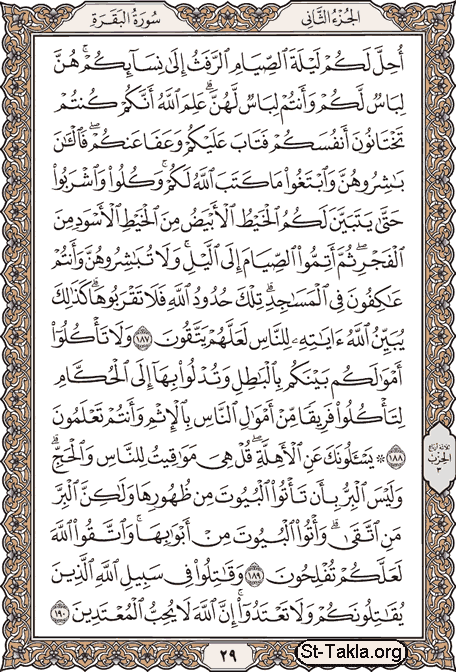 الجُزْءُ الثَّانِي
سُورَةُ البَقَرَةِ
أُحِلَّ لَكُمْ لَيْلَةَ ٱلصِّيَامِ ٱلرَّفَثُ إِلَىٰ نِسَآئِكُمْۚ هُنَّ
لِبَاسٌ لَّكُمْ وَأَنتُمْ لِبَاسٌ لَّهُنَّۗ عَلِمَ ٱللَّهُ أَنَّكُمْ كُنتُمْ
تَخْتَانُونَ أَنفُسَكُمْ فَتَابَ عَلَيْكُمْ وَعَفَا عَنكُمْۖ فَٱلْـَٰٔنَ
بَـٰشِرُوهُنَّ وَٱبْتَغُوا۟ مَا كَتَبَ ٱللَّهُ لَكُمْۚ وَكُلُوا۟ وَٱشْرَبُوا۟
حَتَّىٰ يَتَبَيَّنَ لَكُمُ ٱلْخَيْطُ ٱلْأَبْيَضُ مِنَ ٱلْخَيْطِ ٱلْأَسْوَدِ مِنَ
ٱلْفَجْرِۖ ثُمَّ أَتِمُّوا۟ ٱلصِّيَامَ إِلَى ٱلَّيْلِۚ وَلَا تُبَـٰشِرُوهُنَّ وَأَنتُمْ
عَـٰكِفُونَ فِى ٱلْمَسَـٰجِدِۗ تِلْكَ حُدُودُ ٱللَّهِ فَلَا تَقْرَبُوهَاۗ كَذَٰلِكَ
يُبَيِّنُ ٱللَّهُ ءَايَـٰتِهِۦ لِلنَّاسِ لَعَلَّهُمْ يَتَّقُونَ ١٨٧ وَلَا تَأْكُلُوٓا۟
أَمْوَٰلَكُم بَيْنَكُم بِٱلْبَـٰطِلِ وَتُدْلُوا۟ بِهَآ إِلَى ٱلْحُكَّامِ
لِتَأْكُلُوا۟ فَرِيقًا مِّنْ أَمْوَٰلِ ٱلنَّاسِ بِٱلْإِثْمِ وَأَنتُمْ تَعْلَمُونَ
١٨٨ ۞ يَسْـَٔلُونَكَ عَنِ ٱلْأَهِلَّةِۖ قُلْ هِىَ مَوَٰقِيتُ لِلنَّاسِ وَٱلْحَجِّۗ
وَلَيْسَ ٱلْبِرُّ بِأَن تَأْتُوا۟ ٱلْبُيُوتَ مِن ظُهُورِهَا وَلَـٰكِنَّ ٱلْبِرَّ
مَنِ ٱتَّقَىٰۗ وَأْتُوا۟ ٱلْبُيُوتَ مِنْ أَبْوَٰبِهَاۚ وَٱتَّقُوا۟ ٱللَّهَ
لَعَلَّكُمْ تُفْلِحُونَ ١٨٩ وَقَـٰتِلُوا۟ فِى سَبِيلِ ٱللَّهِ ٱلَّذِينَ
يُقَـٰتِلُونَكُمْ وَلَا تَعْتَدُوٓا۟ۚ إِنَّ ٱللَّهَ لَا يُحِبُّ ٱلْمُعْتَدِينَ ١٩٠
ثلاثة أرباع
الحزب
٣
٢٩
St-Takla.org